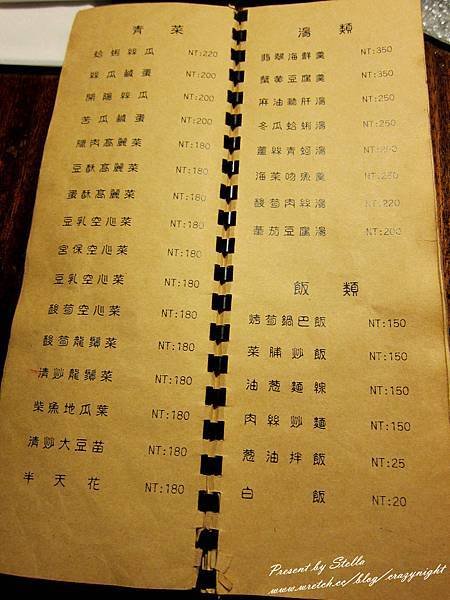 青菜
蛤蜊絲瓜 NT:220
絲瓜鹹蛋 NT:200
開陽絲瓜 NT:200
苦瓜鹹蛋 NT:200
臘肉高麗菜 NT:180
豆酥高麗菜 NT:180
蛋酥高麗菜 NT:180
豆乳空心菜 NT:180
宮保空心菜 NT:180
豆乳空心菜 NT:180
酸筍空心菜 NT:180
酸筍龍鬚菜 NT:180
清炒龍鬚菜 NT:180
柴魚地瓜葉 NT:180
清炒大豆苗 NT:180
半天花 NT:180
湯類
翡翠海鮮羹 NT:350
蟹黃豆腐羹 NT:350
麻油豬肝湯 NT:250
冬瓜蛤蜊湯 NT:250
薑絲青蛙湯 NT:250
海菜吻魚羹 NT:250
酸筍肉絲湯 NT:220
蕃茄豆腐湯 NT:200
飯類
烤筍鍋巴飯 NT:150
菜脯炒飯 NT:150
油蔥麵線 NT:150
肉絲炒麵 NT:150
蔥油拌飯 NT:25
白飯 NT:20
Present by Stella
www.wretch.cc/blog/crazynight